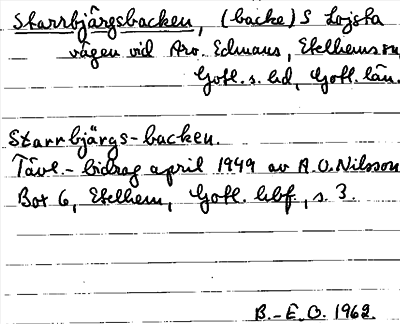 Starrbjärgsbacken, (backe) S Lojsta
vägen vid Arv. Edmans, Etelhems sn,
Gotl. s. hd, Gotl. län.
Starrbjärgs-backen.
Tävl.- bidrag april 1949 av A.O. Nilsson
Box 6, Etelhem, Gotl. hbf., s. 3.
B.-E.O. 1962.